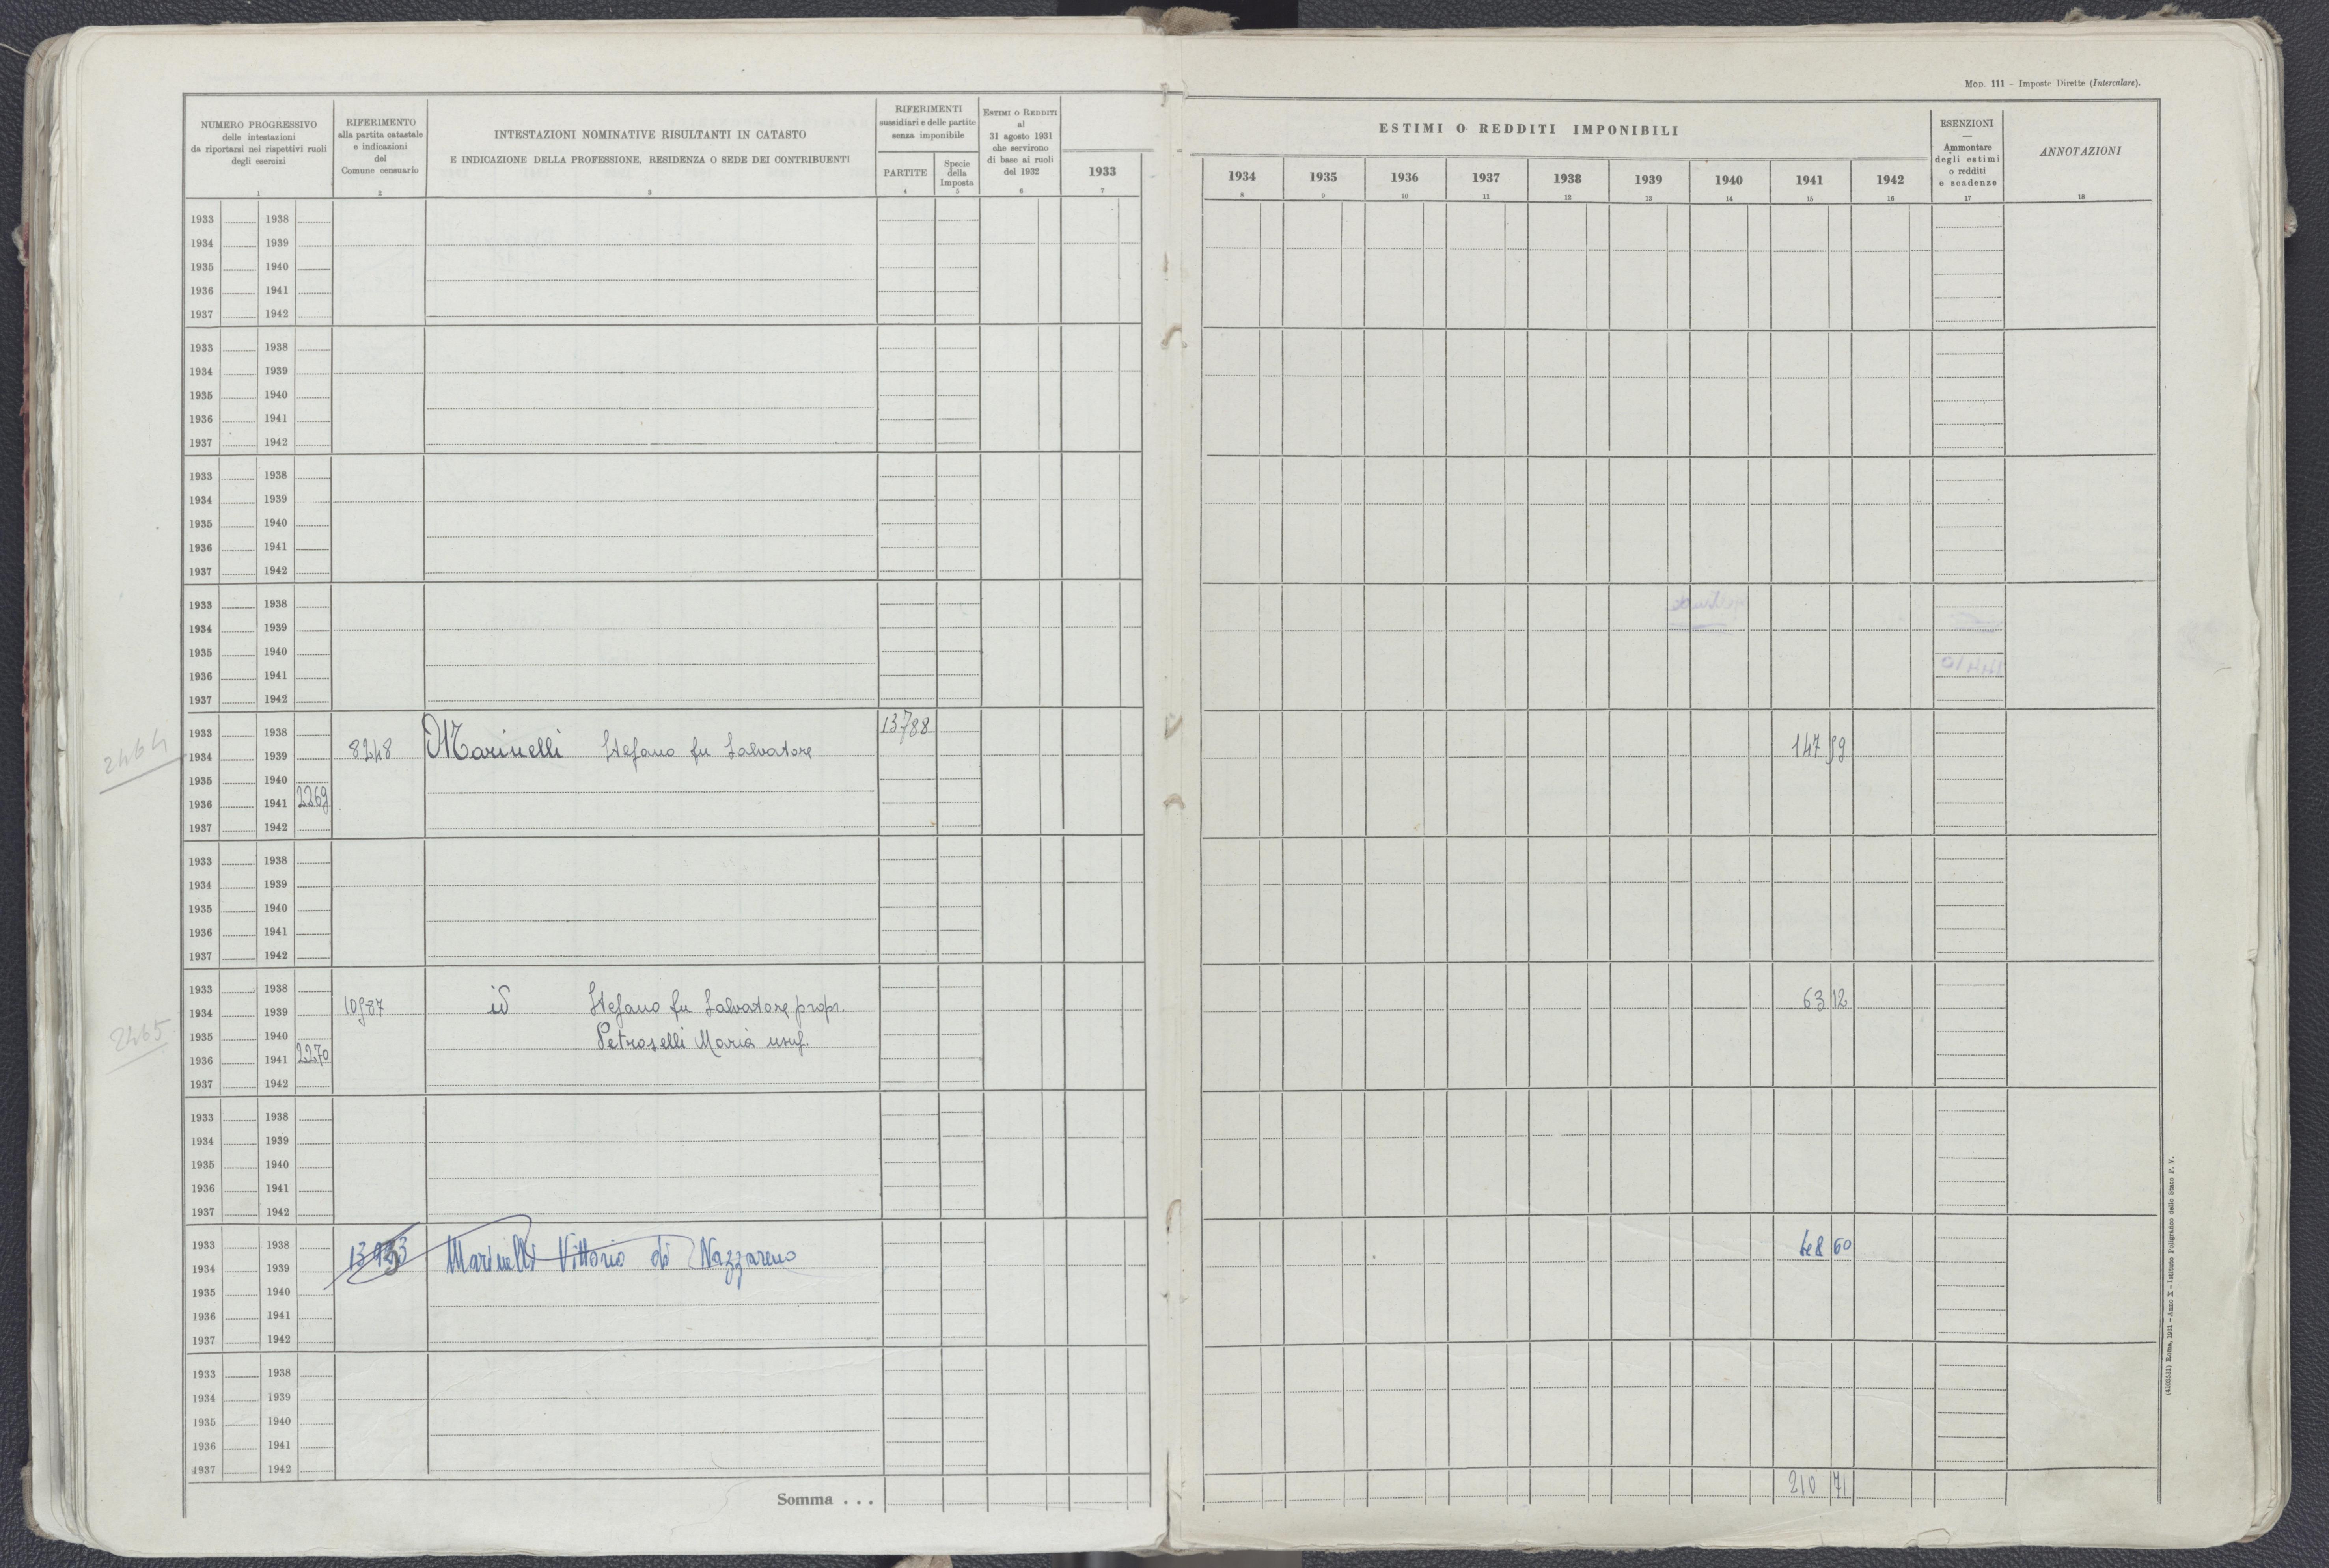 Mod. 111 - Imposte Dirette (Intercalare).
NUMERO PROGRESSIVO
delle intestazioni
da riportarsi nei rispettivi ruoli
degli esercizi
1
RIFERIMENTO
alla partita catastale
e indicazioni
del
Comune censuario
2
INTESTAZIONI NOMINATIVE RISULTANTI IN CATASTO
E INDICAZIONE DELLA PROFESSIONE, RESIDENZA O SEDE DEI CONTRIBUENTI
3
RIFERIMENTI
sussidiari e delle partite
senza imponibile
PARTITE
4
Specie
della
Imposta
5
ESTIMI O REDDITI
al
31 agosto 1931
che servirono
di base ai ruoli
del 1932
6
1933
7
ESTIMI O REDDITI IMPONIBILI
1934 1935 1936 1937 1938 1939 1940 1941 1942
8 9 10 11 12 13 14 15 16
ESENZIONI
—
Ammontare
degli estimi
o redditi
e scadenze
17
ANNOTAZIONI
18
1933 1938
1934 1939
1935 1940
1936 1941
1937 1942
1933 1938
1934 1939
1935 1940
1936 1941
1937 1942
1933 1938
1934 1939
1935 1940
1936 1941
1937 1942
1933 1938
1934 1939
1935 1940
1936 1941
1937 1942
2464
1933 1938 13788
1934 1939 8248 Marinelli Stefano fu Salvatore 147 59
1935 1940
1936 1941 2269
1937 1942
1933 1938
1934 1939
1935 1940
1936 1941
1937 1942
2465
1933 1938
1934 1939 10987 id Stefano fu Salvatore propr. 63 12
1935 1940 Petroselli Maria usuf.
1936 1941 2270
1937 1942
1933 1938
1934 1939
1935 1940
1936 1941
1937 1942
1933 1938 Marinelli Vittorio di Nazzareno 48 60
1934 1939
1935 1940
1936 1941
1937 1942
1933 1938
1934 1939
1935 1940
1936 1941
1937 1942
Somma . . . 210 71